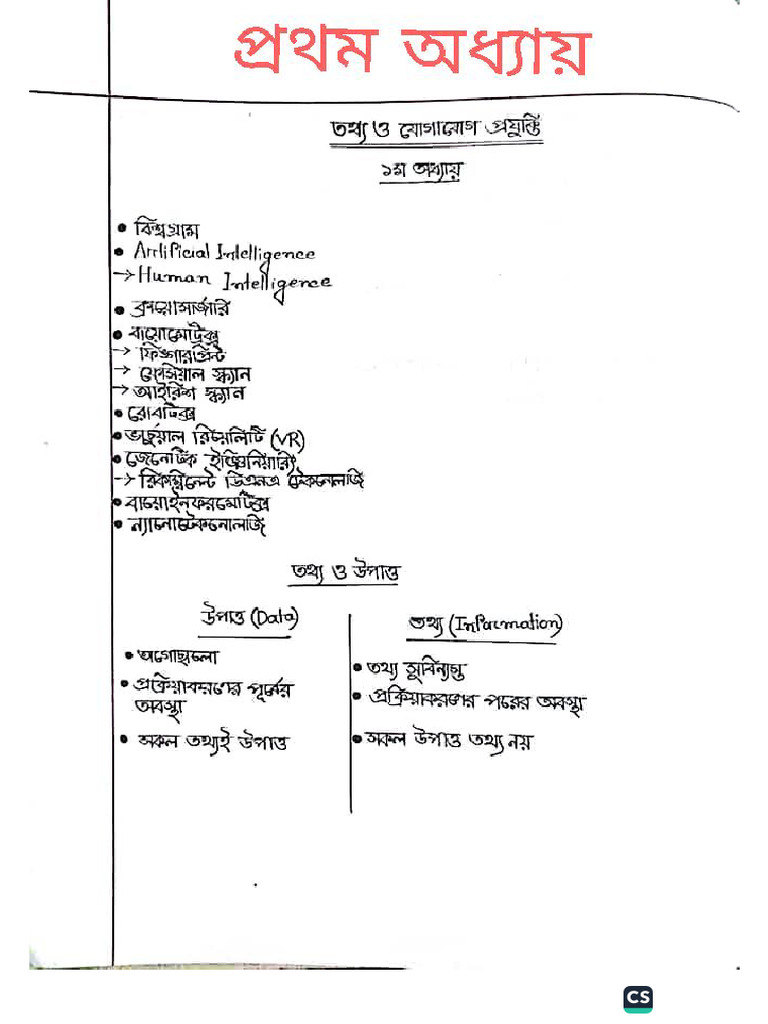 প্রথম অধ্যায়
তথ্য ও যোগাযোগ প্রযুক্তি
১ম অধ্যায়
• বিশ্বগ্রাম
• Artificial Intelligence
→ Human Intelligence
• ক্রায়োসার্জারি
• বায়োমেট্রিক্স
→ ফিঙ্গারপ্রিন্ট
→ ফেসিয়াল স্ক্যান
→ আইরিশ স্ক্যান
• রোবটিক্স
• ভার্চুয়াল রিয়েলিটি (VR)
• জেনেটিক ইঞ্জিনিয়ারিং
→ রিকম্বিনেন্ট ডিএনএ টেকনোলজি
• বায়োইনফরমেটিক্স
• ন্যানোটেকনোলজি
তথ্য ও উপাত্ত
উপাত্ত (Data)
• অগোছালো
• প্রক্রিয়াকরণের পূর্বের
অবস্থা
• সকল তথ্যই উপাত্ত
তথ্য (Information)
• তথ্য সুবিন্যস্ত
• প্রক্রিয়াকরণের পরের অবস্থা
• সকল উপাত্ত তথ্য নয়
CS